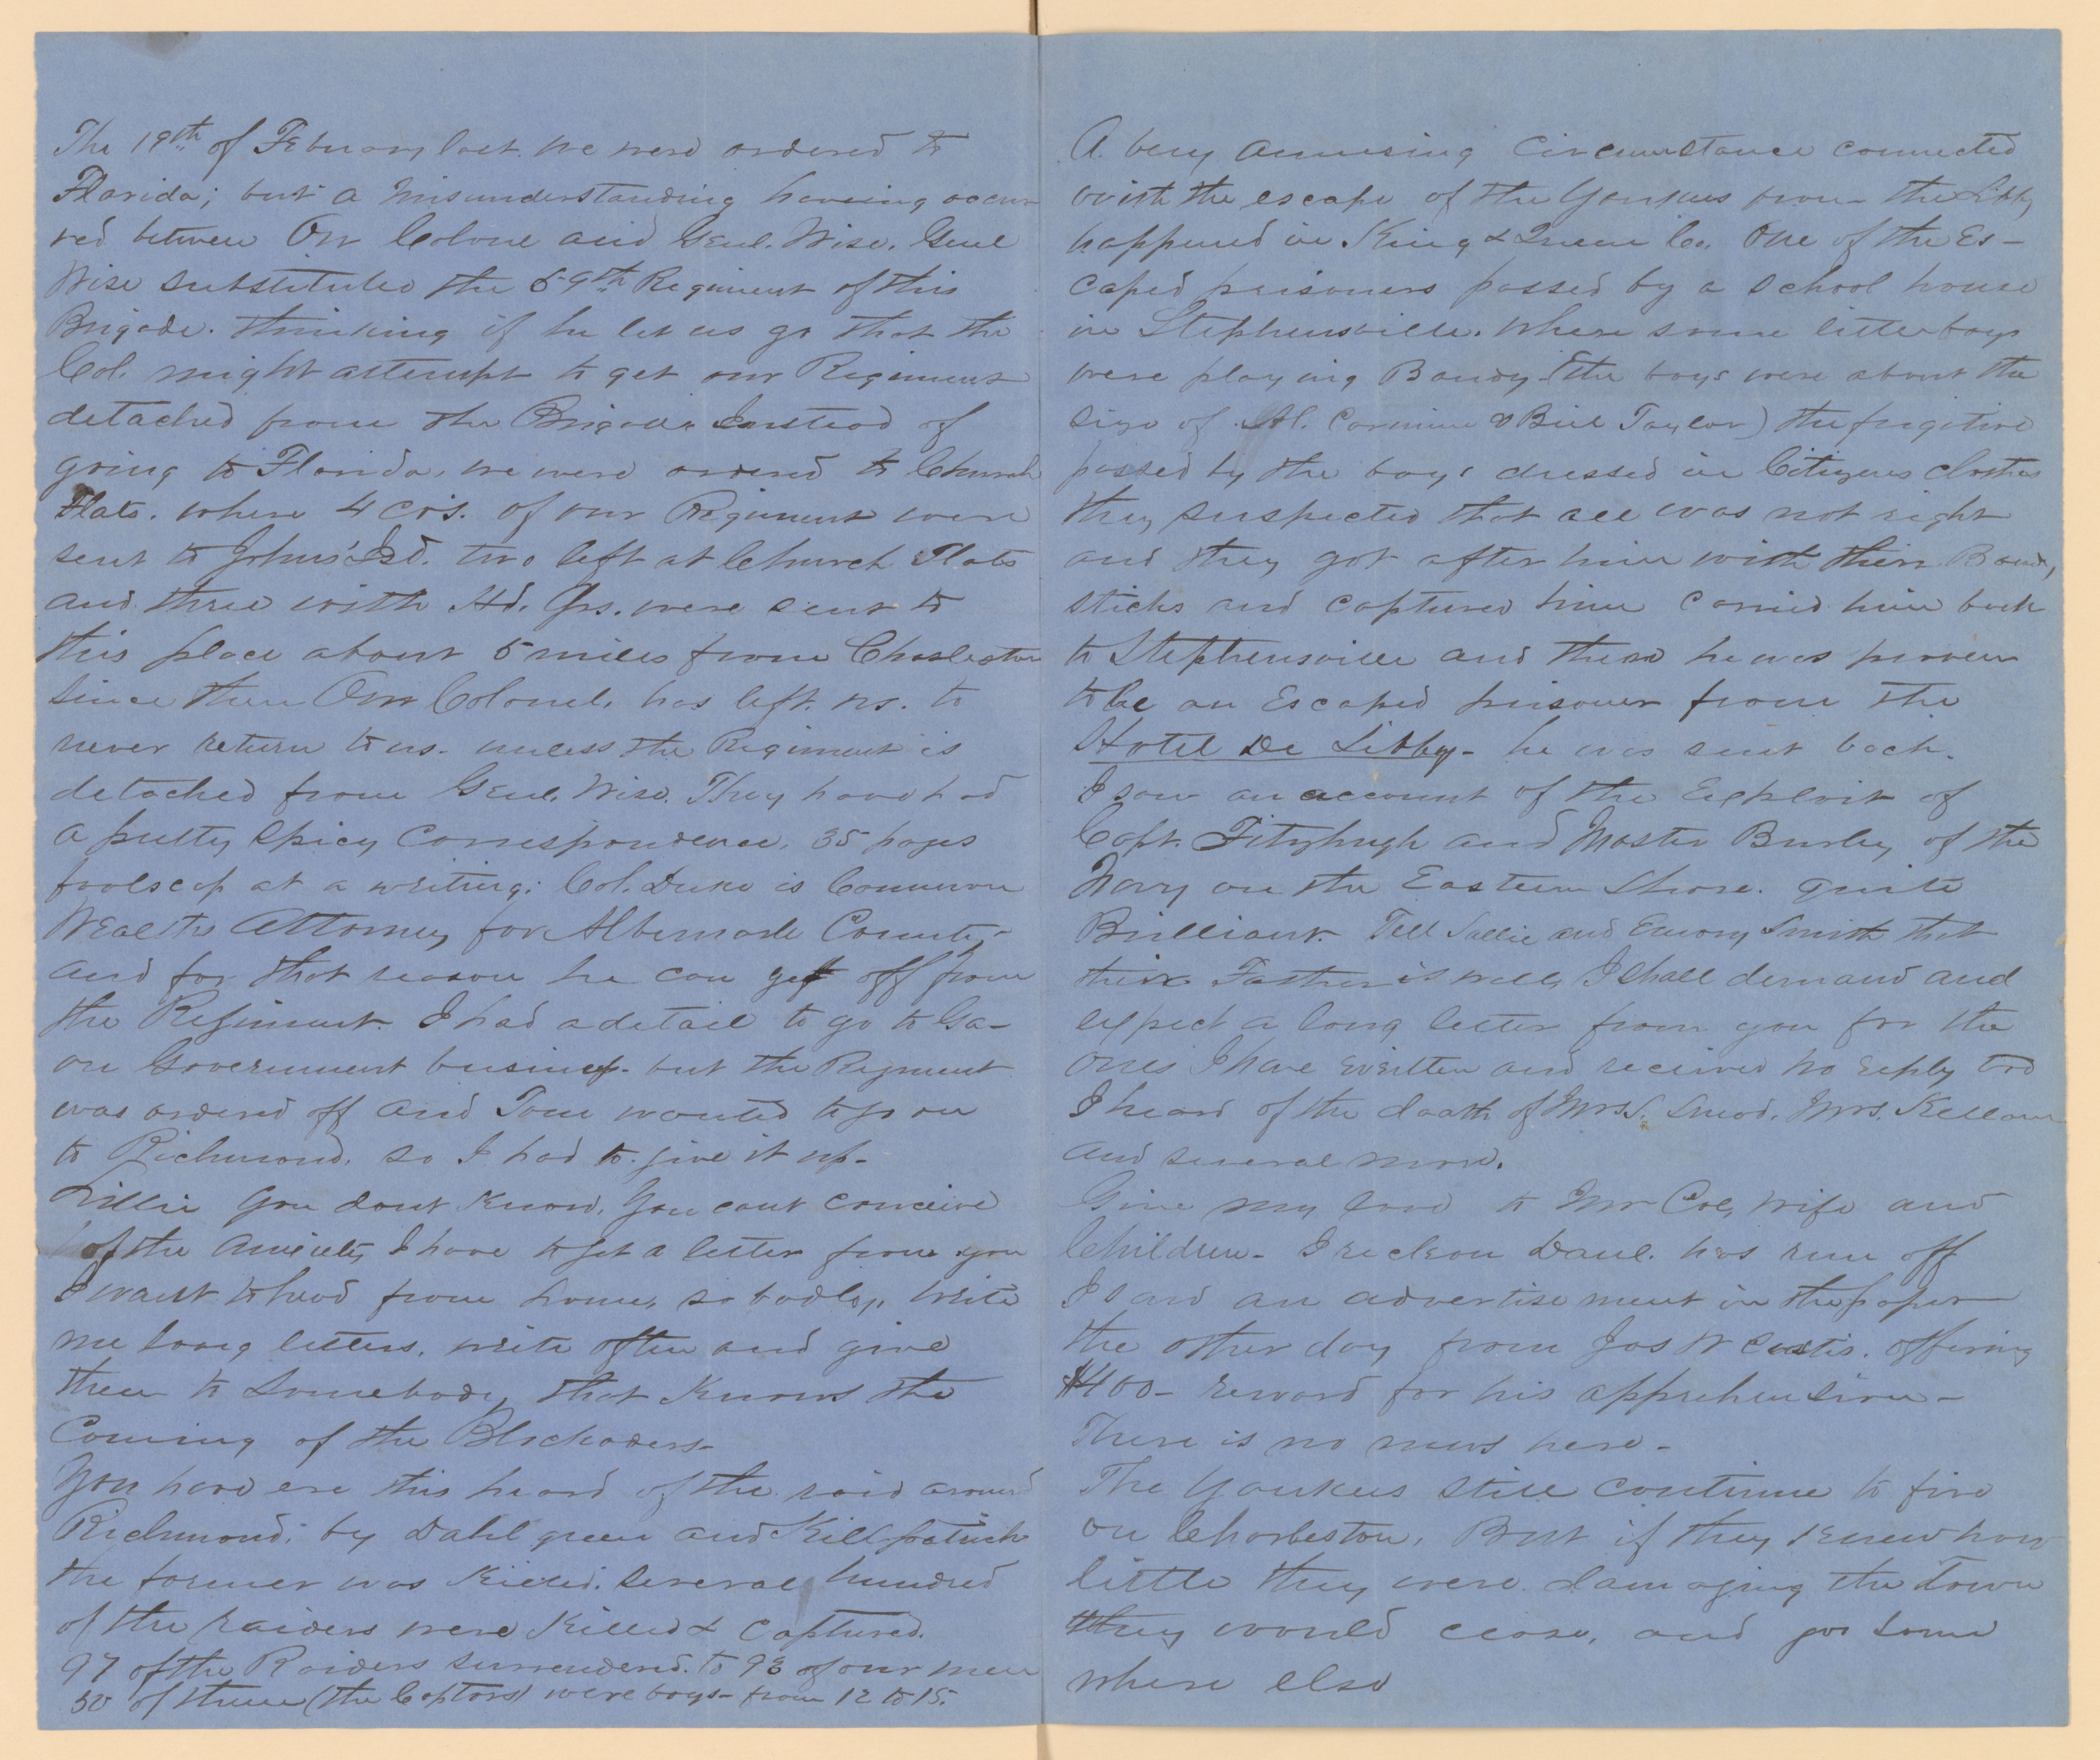 The 19th of February last we were ordered to
Florida; but a misunderstanding having occur
red between Our Colone and Genl. Wise. Genl
Wise substituted the 59th Regiment of this
Brigade. thinking if he let us go that the
Col. might attempt to get our Regiment
detached from the Brigade Instead of
going to Florida, we were ordered to Church
Flats. where 4 cos. of our Regiment were
sent to John's Isd. two left at Church Flats
and three with Hd. Qrs. were sent to
this place about 5 miles from Charleston
since then Our Colonel. has left us. to
never return to us. unless the Regiment is
detached from Genl. Wise. They have had
a pretty spicy correspondence, 35 pages
foolscap at a writing; Col. Duke is Common
Wealths Attorney for Albemarle County-
and for that reason he can get off from
the Regiment. I had a detail to go to Ga-
on Government business- but the Regment
was ordered off and Tom wanted to go on
to Richmond, so I had to give it up-
Lillie you dont know, you cant conceive
of the anxiety I have to get a letter from you
I want to hear from home, so badly, write
me long letters, write often and give
them to Somebody that knows the
Coming of the Blockaders-
You have ere this heard of the raid around
Richmond. by Dahlgreen and Killpatrick
the former was killed. several hundred
of the raiders were killed & captured.
97 of the Raiders surrendered. to 93 of our men
50 of them (the Captors) were boys- from 12 to 15.
A very amusing Circumstance connected
with the escape of the Yankees from the Libby
happened in King & Queen Co. One of the Es-
caped prisoners passed by a school house
in Stephensville. where some little boys
were playing Bandy (the boys were about the
size of Al. & Bill Taylor) the fugitive
passed by the boys dressed in Citizens clothes
they suspected that all was not right
and they got after him with their Bandy
sticks and captured him carried him back
to Stephensville and there he was proven
to be an Escaped prisoner from the
Hotel De Libby- he was sent back.
I saw an account of the Exploit of
Capt. Fitzhugh and Master Burley of the
Navy on the Eastern Shore. quite
Brilliant. Tell Sallie and Emory Smith that
their Father is well, I shall demand and
expect a long letter from you for the
ones I have written and received no reply too
I heard of the death of Mrs. S. Snead, Mrs. Kellam
and several more.
Give my love to Mr Cole, Wife and
Children- I reckon Danl. has run off
I saw an advertisement in the paper
the other day from Jas W Custis. offering
$400- reward for his apprehension-
There is no news here-
The Yankees still continue to fire
on Charleston, But if they knew how
little they were damaging the town
they would cease, and go some
where else